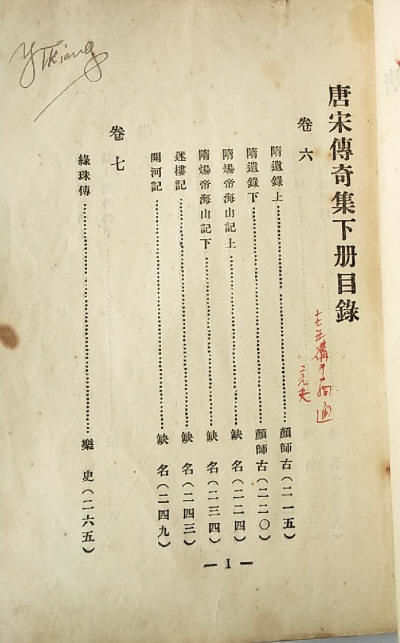 唐宋傳奇集下册目錄
十七年購于南通
卷六
隋遺錄上……顏師古(二一五)
隋遺錄下……顏師古(二二〇)
隋煬帝海山記上……缺名(二二四)
隋煬帝海山記下……缺名(二三四)
迷樓記……缺名(二四三)
開河記……缺名(二四九)
卷七
綠珠傳……樂史(二六五)
— I —
Y Tkiang